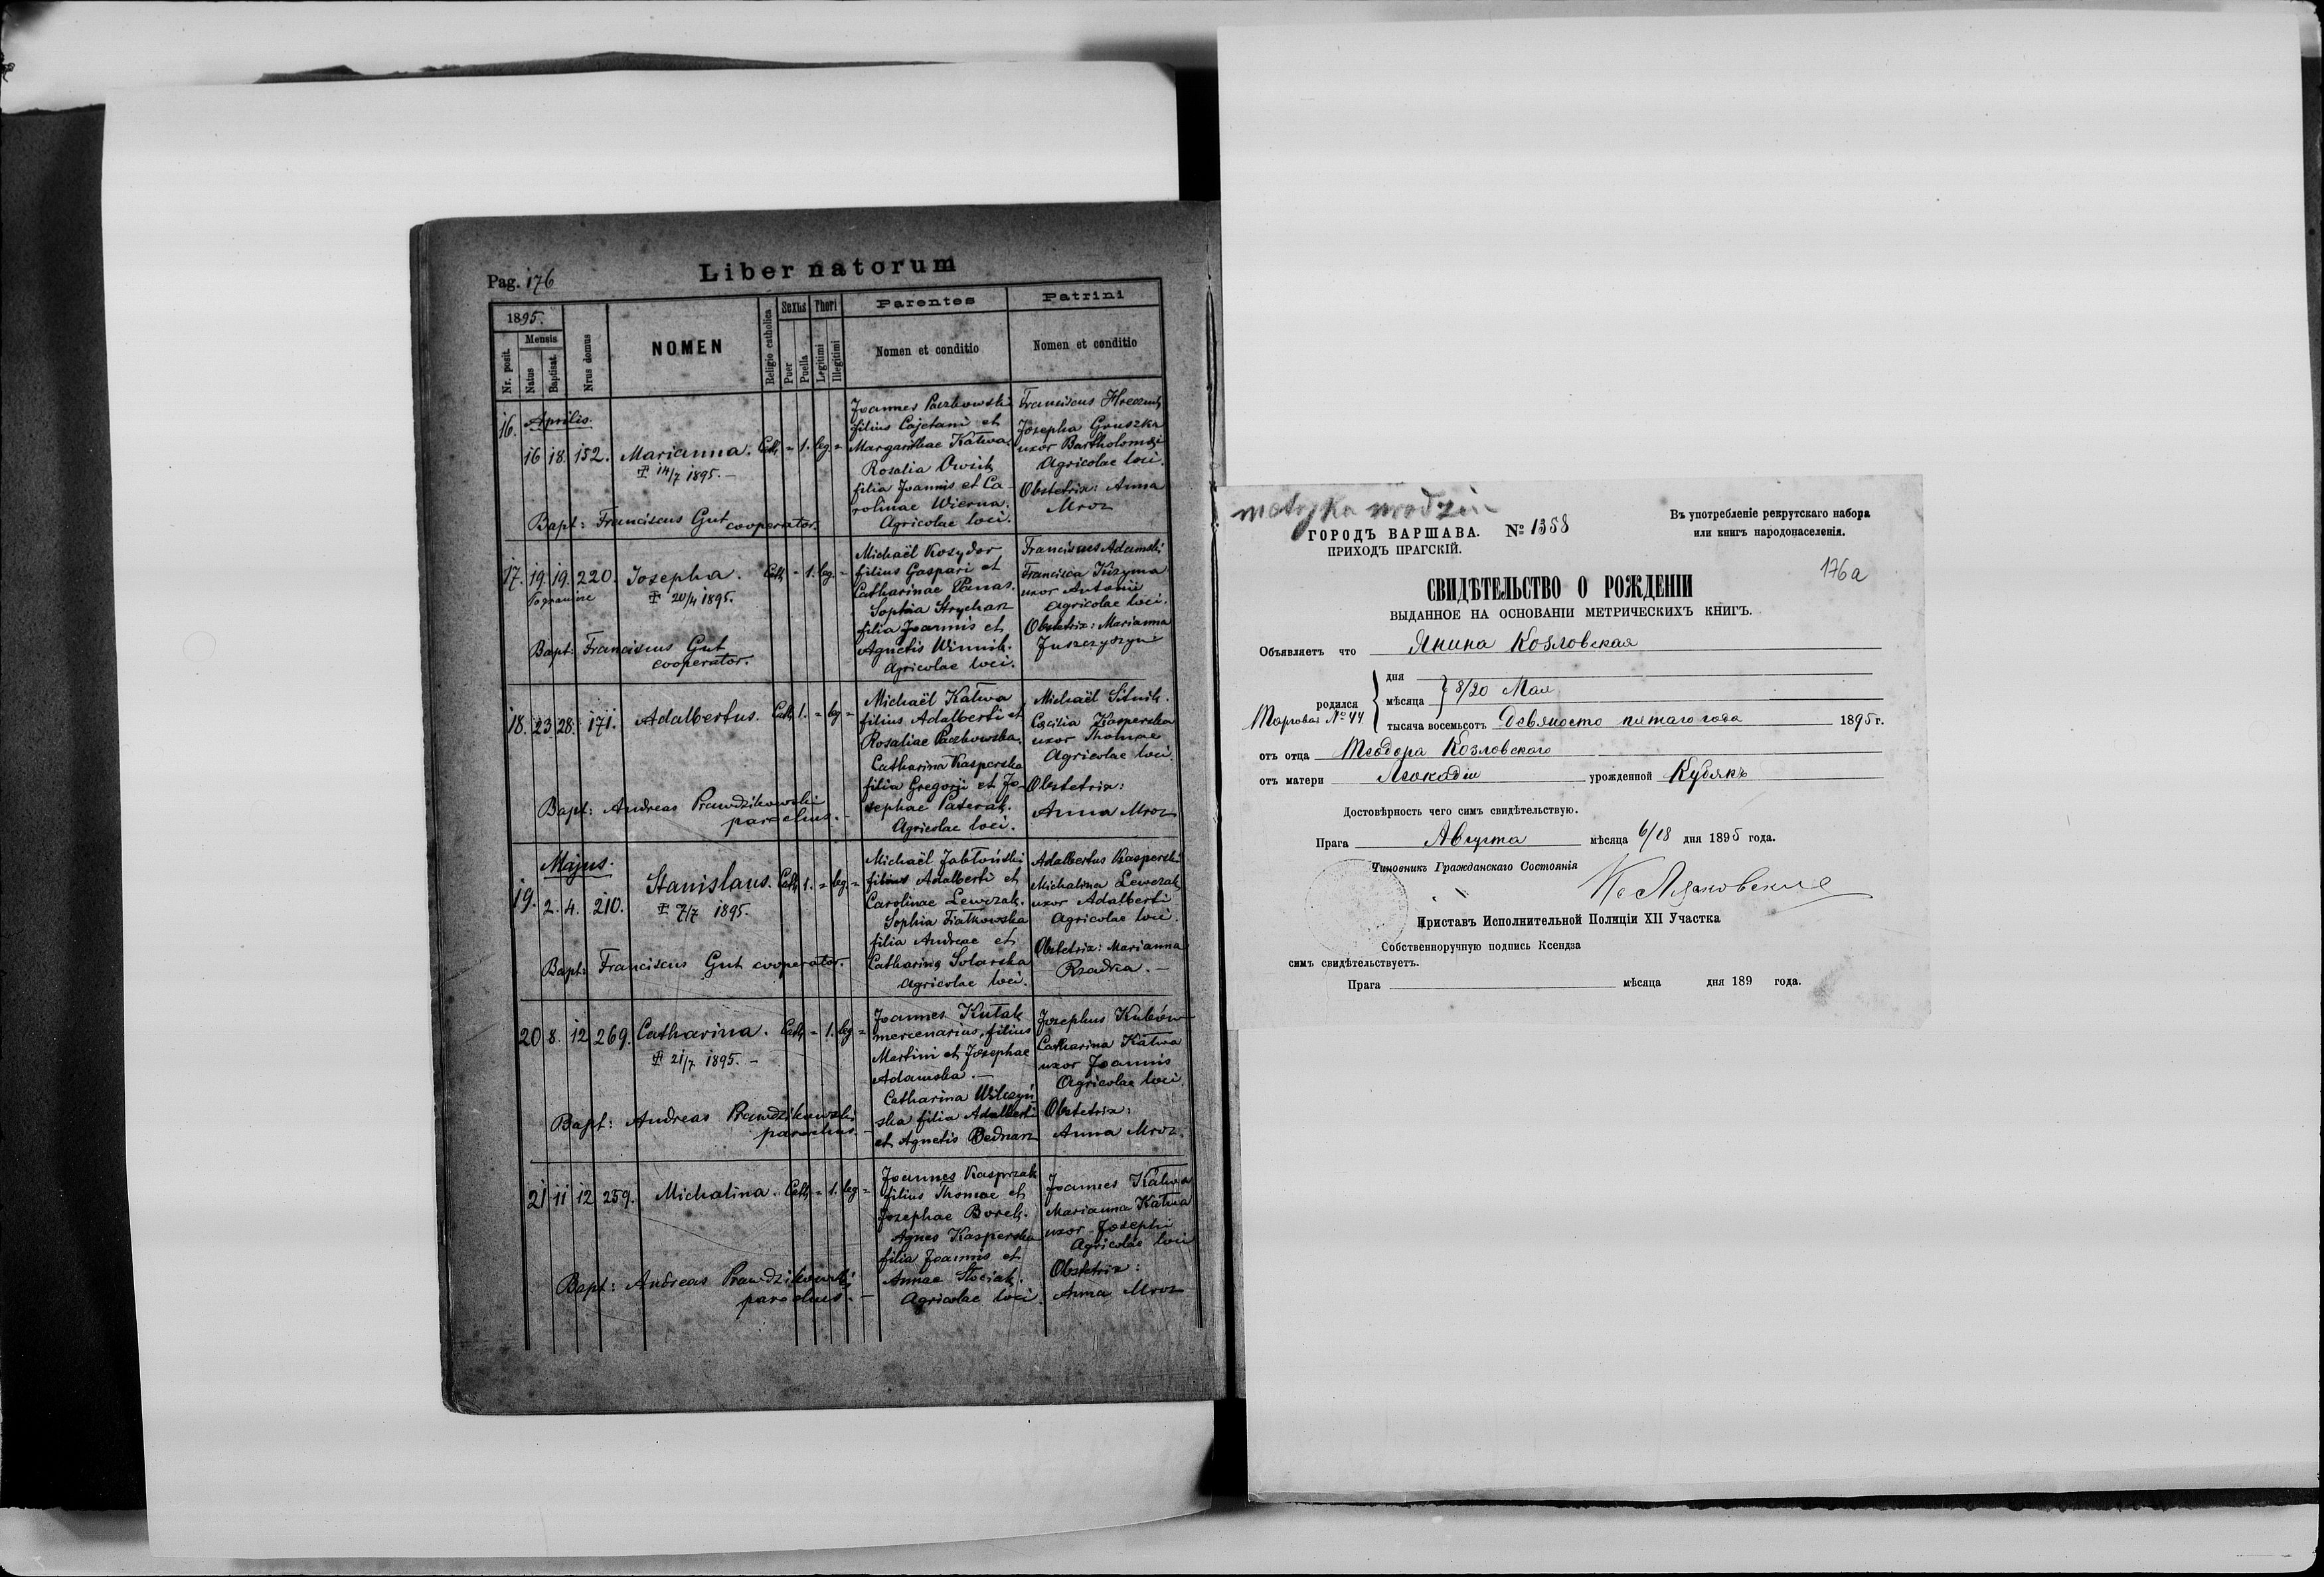 Pag. 176
Liber natorum
1895.
Nr. posit.
Mensis
Natus
Baptisat.
Nrus domus
NOMEN
Religio catholica
Sexus
Puer
Puella
Thori
Legitimi
Illegitimi
Parentes
Nomen et conditio
Patrini
Nomen et conditio
16. Aprilis.
16 18. 152. Marianna. Cath = 1. leg. =
14/7 1895. —
Bapt: Franciscus Gut cooperator.
Joannes Paczkowski
filius Cajetani et
Margarithae Katwa.
Rosalia Owsik
filia Joannis et Ca-
rolinae Wierna.
Agricolae loci.
Franciscus
Josepha Gruszka
uxor Bartholomaei
Agricolae loci.
Obstetrix: Anna
Mroz
17. 19. 19. 220. Josepha. Cath = 1. leg. =
20/4 1895.
Bapt: Franciscus Gut
cooperator.
Michaël Kozydor
filius Gaspari et
Catharinae Panas.
Sophia Strycharz
filia Joannis et
Agnetis Winnik.
Agricolae loci.
Franciscus Adamski
Francisca Kuzyma
uxor Antonii
Agricolae loci.
Obstetrix: Marianna
Juszczyszyn
18. 23. 28. 171. Adalbertus. Cath 1. = leg =
Bapt: Andreas Prawdzikowski
parochus. —
Michaël Katwa
filius Adalberti et
Rosaliae Paczkowska.
Catharina Kasperska
filia Gregorji et Jo-
sephae Paterak.
Agricolae loci.
Michaël Sitnik.
Cæcilia Kasperska
uxor Thomae
Agricolae loci.
Obstetrix:
Anna Mroz
Majus.
19. 2. 4. 210. Stanislaus. Cath 1. = leg. =
7/7 1895.
Bapt: Franciscus Gut cooperator.
Michaël Jabłoński
filius Adalberti et
Carolinae Lewczak.
Sophia Fiałkowska
filia Andreae et
Catharina Solarska
Agricolae loci.
Adalbertus Kasperski
Michalina Lewczak
uxor Adalberti
Agricolae loci.
Obstetrix: Marianna
Rzadka. —
20 8. 12 269. Catharina. Cath = 1. leg =
21/7 1895. —
Bapt: Andreas Prawdzikowski
parochus. —
Joannes Kutak
mercenarius, filius
Martini et Josephae
Adamska. —
Catharina Wilczyń
ska filia Adalberti
et Agnetis Bednarz
Josephus Kubów
Catharina Katwa
uxor Joannis
Agricolae loci.
Obstetrix:
Anna Mroz.
21 11 12 259. Michalina. Cath = 1. leg =
Bapt: Andreas Prawdzikowski
parochus. —
Joannes Kasprzak
filius Thomae et
Josephae Borek.
Agnes Kasperska
filia Joannis et
Annae Słociak.
Agricolae loci.
Joannes Katwa
Marianna Katwa
uxor Josephi
Agricolae loci
Obstetrix:
Anna Mroz
metryka urodzin
ГОРОДЪ ВАРШАВА. № 1388
ПРИХОДЪ ПРАГСКІЙ.
Въ употребленіе рекрутскаго набора
или книгъ народонаселенія.
176a
СВИДѢТЕЛЬСТВО О РОЖДЕНІИ
ВЫДАННОЕ НА ОСНОВАНІИ МЕТРИЧЕСКИХЪ КНИГЪ.
Объявляетъ что Янина Козловская
родился дня
мѣсяца 8/20 Мая
Торговая № 44 тысяча восемьсотъ девяносто пятаго года 1895 г.
отъ отца Теодора Козловскаго
отъ матери Леокадіи урожденной Кубякъ
Достовѣрность чего симъ свидѣтельствую.
Прага Августа мѣсяца 6/18 дня 1895 года.
Чиновникъ Гражданскаго Состоянія
Приставъ Исполнительной Полиціи XII Участка
Собственноручную подпись Ксендза
симъ свидѣтельствуетъ.
Прага мѣсяца дня 189 года.